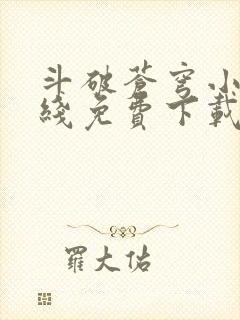 斗破苍穹小
綫免費下載
羅大佑